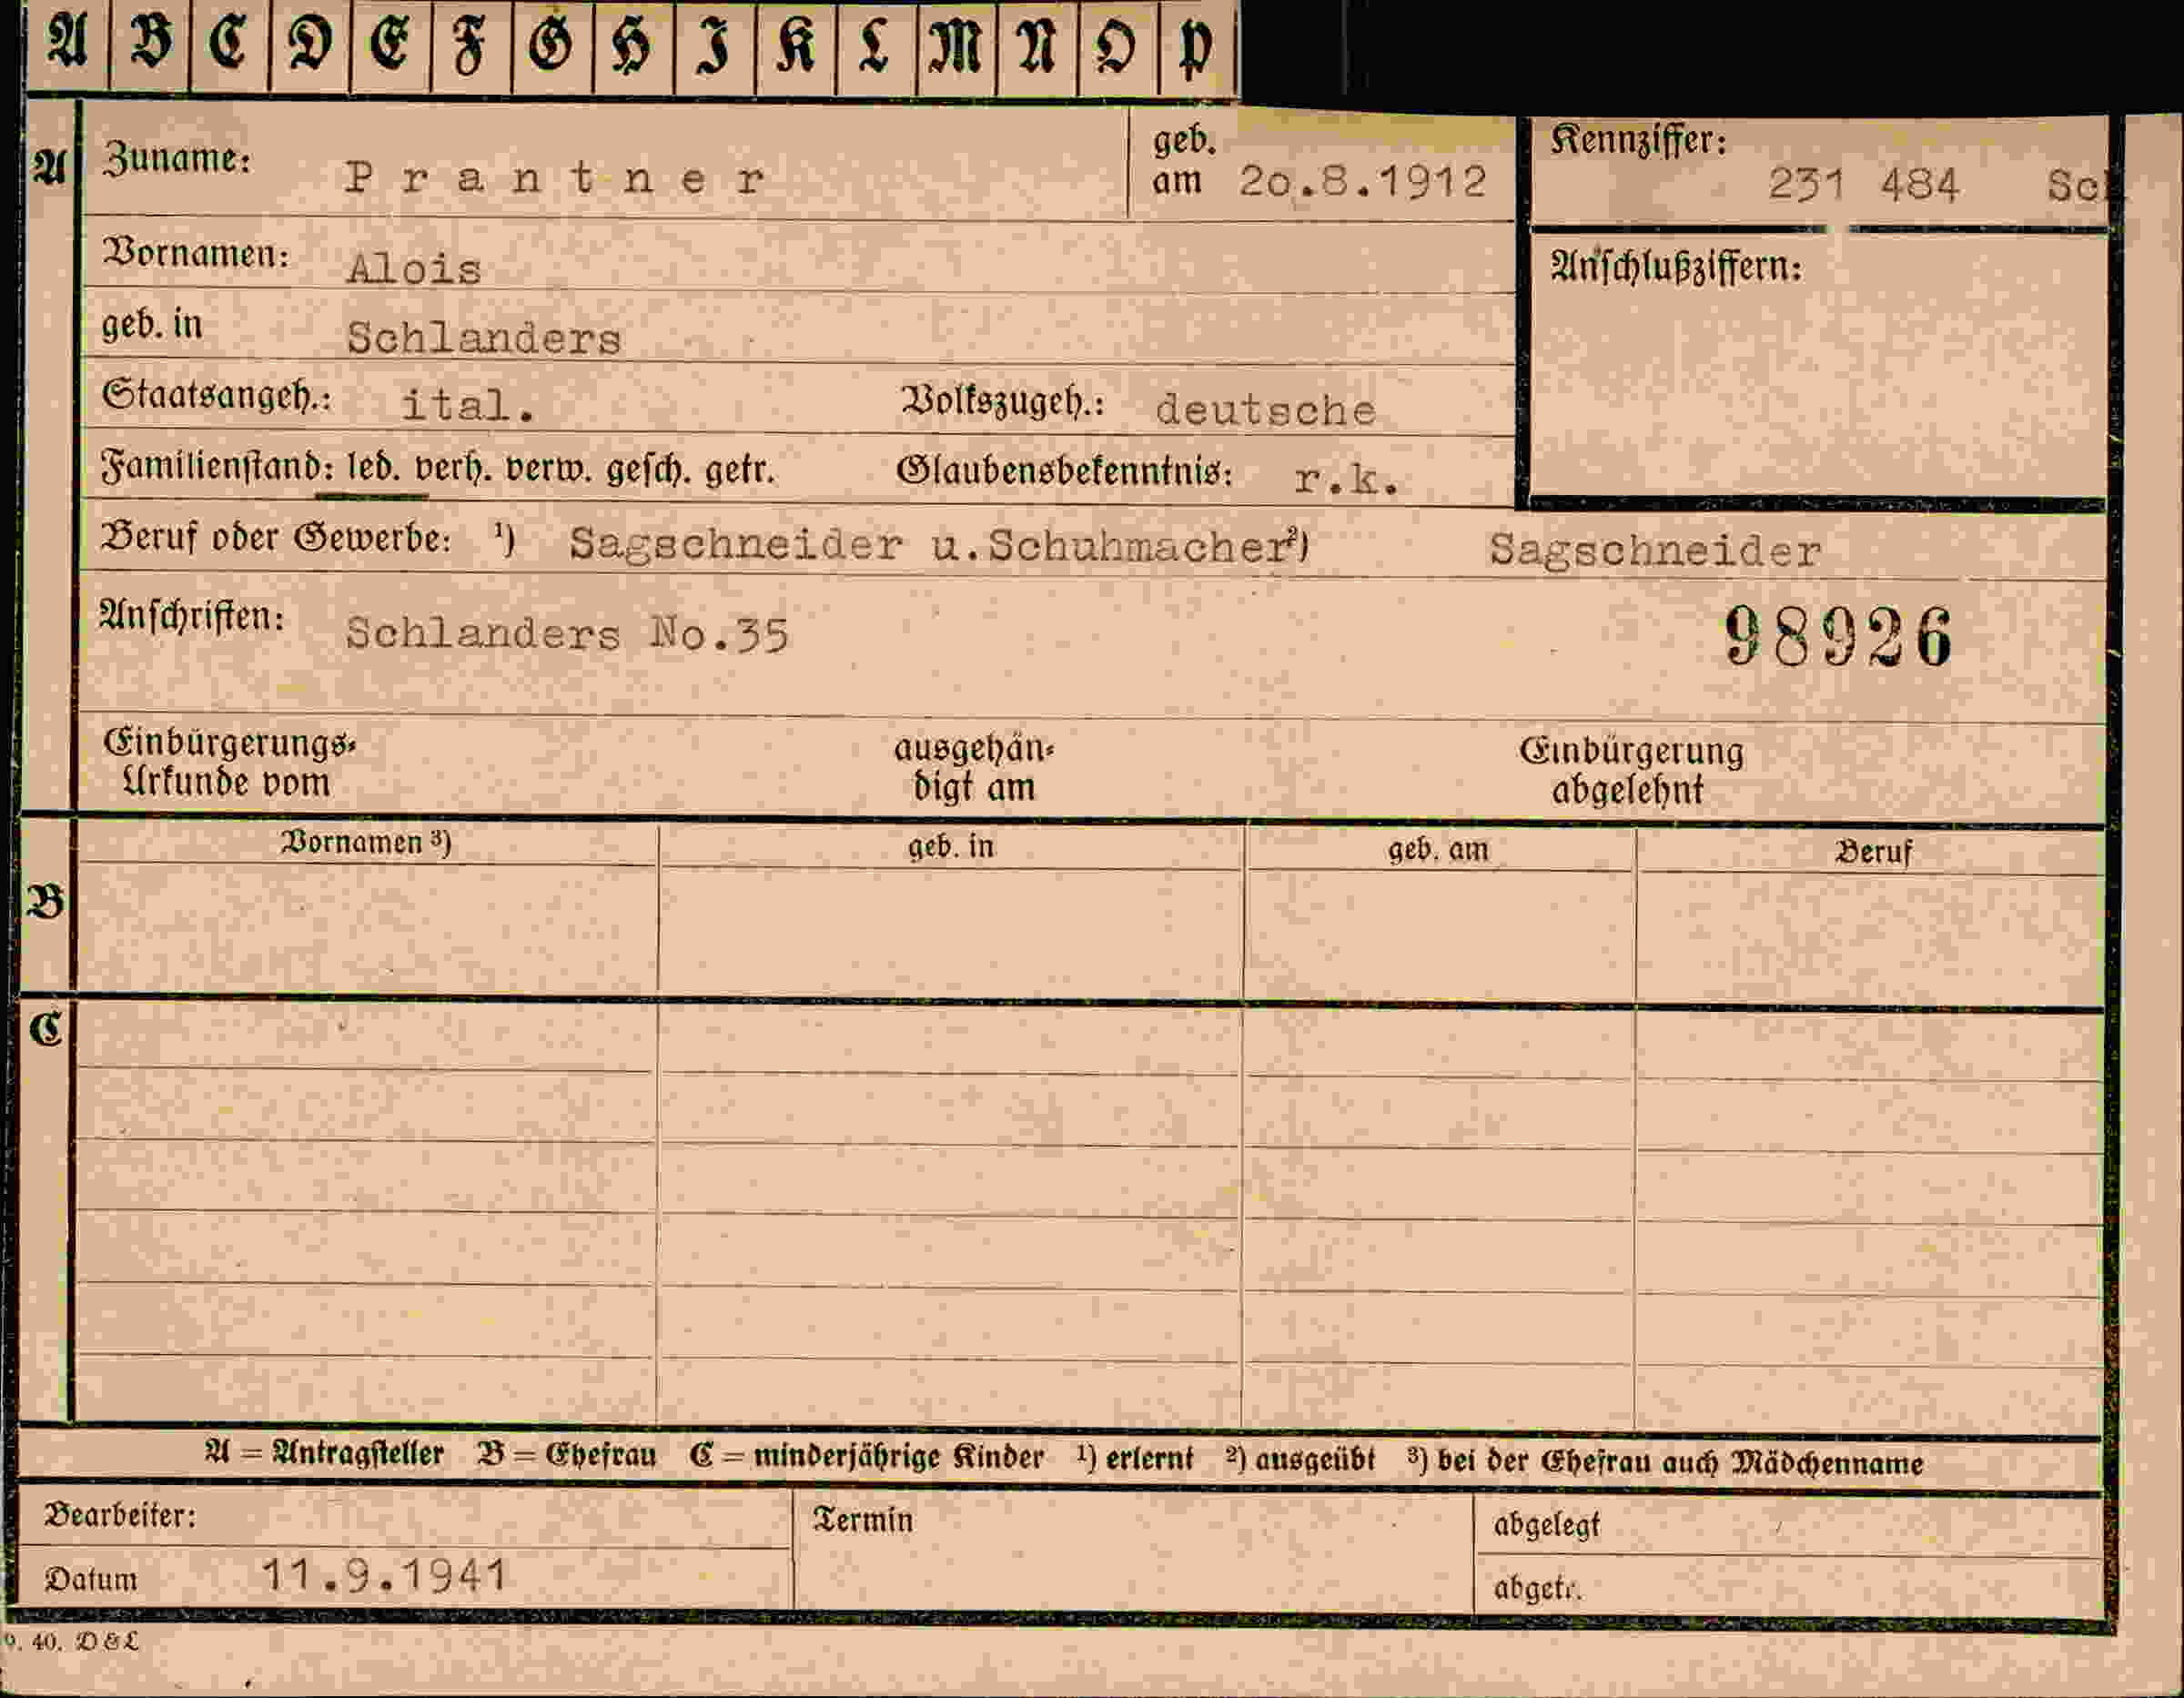 A B C D E F G H I K L M N O P
A Zuname: Prantner geb. am 20.8.1912 Kennziffer: 231 484 Sch
Vornamen: Alois Anschlußziffern:
geb. in Schlanders
Staatsangeh.: ital. Volkszugeh.: deutsche
Familienstand: led. verh. verw. gesch. getr. Glaubensbekenntnis: r.k.
Beruf oder Gewerbe: ¹) Sagschneider u.Schuhmacher ²) Sagschneider
Anschriften: Schlanders No.35 98926
Einbürgerungs- ausgehän- Einbürgerung
Urkunde vom digt am abgelehnt
Vornamen ³) geb. in geb. am Beruf
B
C
A = Antragsteller B = Ehefrau C = minderjährige Kinder ¹) erlernt ²) ausgeübt ³) bei der Ehefrau auch Mädchenname
Bearbeiter: Termin abgelegt
Datum 11.9.1941 abgetr.
9. 40. D & L